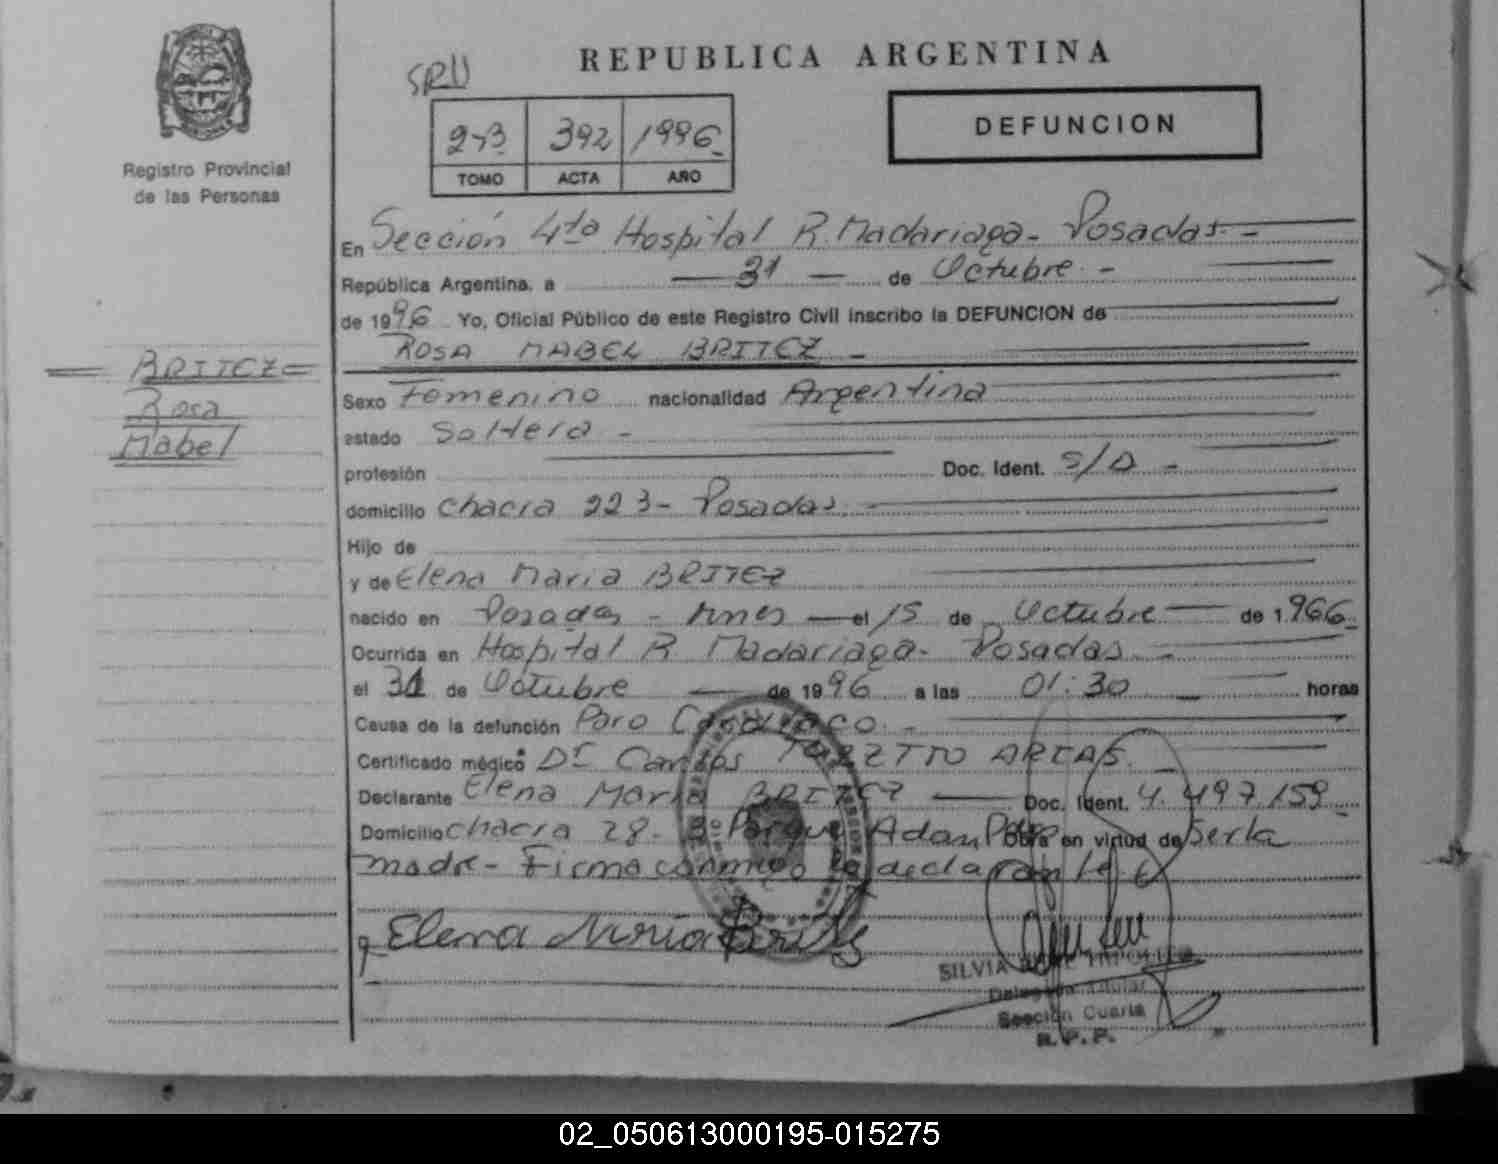 REPUBLICA ARGENTINA
SRU
2-3 392 1996
TOMO ACTA AÑO
DEFUNCION
Registro Provincial
de las Personas
En Sección 4ta Hospital R. Madariaga - Posadas -
República Argentina, a 31 de Octubre -
de 1996 Yo, Oficial Público de este Registro Civil inscribo la DEFUNCION de
ROSA MABEL BRITEZ -
BRITEZ
Rosa
Mabel
Sexo Femenino nacionalidad Argentina
estado Soltera -
profesión Doc. Ident. S/D -
domicilio Chacra 223 - Posadas.
Hijo de
y de Elena Maria BRITEZ
nacido en Posadas - Mnes - el 15 de Octubre de 1.966
Ocurrida en Hospital R Madariaga - Posadas -
el 31 de Octubre de 1996 a las 01:30 horas
Causa de la defunción Paro Cardiaco. -
Certificado médico Dr Carlos ARIAS.
Declarante Elena Maria BRITEZ Doc. Ident. 4.497.159
Domicilio Chacra 28 - Parque Adam Obra en virtud de Ser la
madre - Firma conmigo la declarante.
Elena Britez
SILVIA
Delegada Titular
Sección Cuarta
R.P.P.
02_050613000195-015275